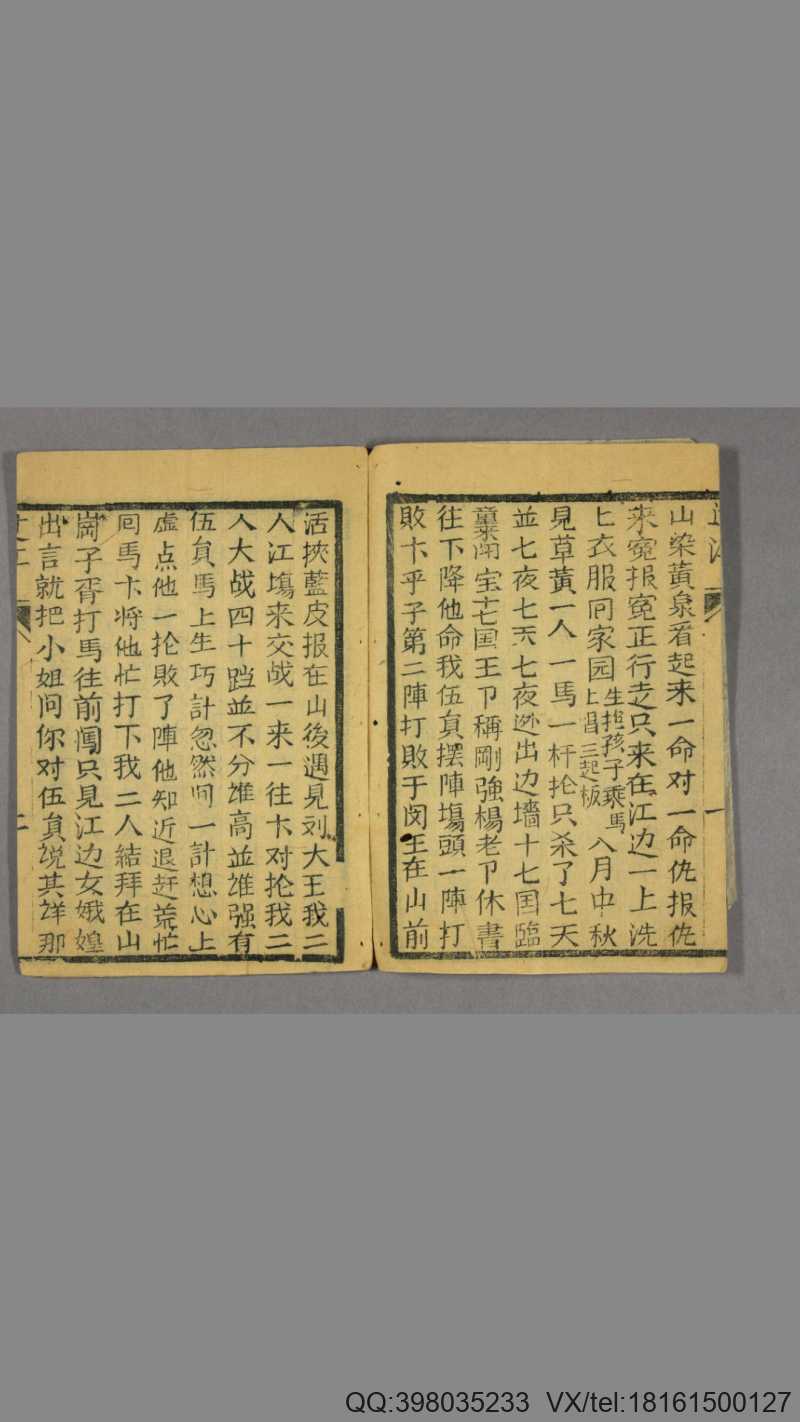 山染黃泉看起来一命对一命仇报仇
来寃报寃正行走只来在江边一上洗
衣服囘家园
生抱孩子乘馬
上唱三起板
八月中秋
見草黃一人一馬一杆抡只杀了七天
並七夜七天七夜逊出边墙十七国臨
童閙宝七国王卩稱剛強楊老卩休書
往下降他命我伍負摆陣塲頭一陣打
敗卞乎子第二陣打敗于闵王在山前
活挾藍皮报在山後遇見刘大王我二
人江塲来交战一来一往卞对抡我二
人大战四十跆並不分雄高並雄强有
伍負馬上生巧計忽然间一計想心上
虚点他一抡敗了陣他知近退赶荒忙
囘馬卞将他忙打下我二人結拜在山
崗子胥打馬往前闯只見江边女娥媓
出言就把小姐问你对伍負説其祥那
QQ:398035233 VX/tel:18161500127